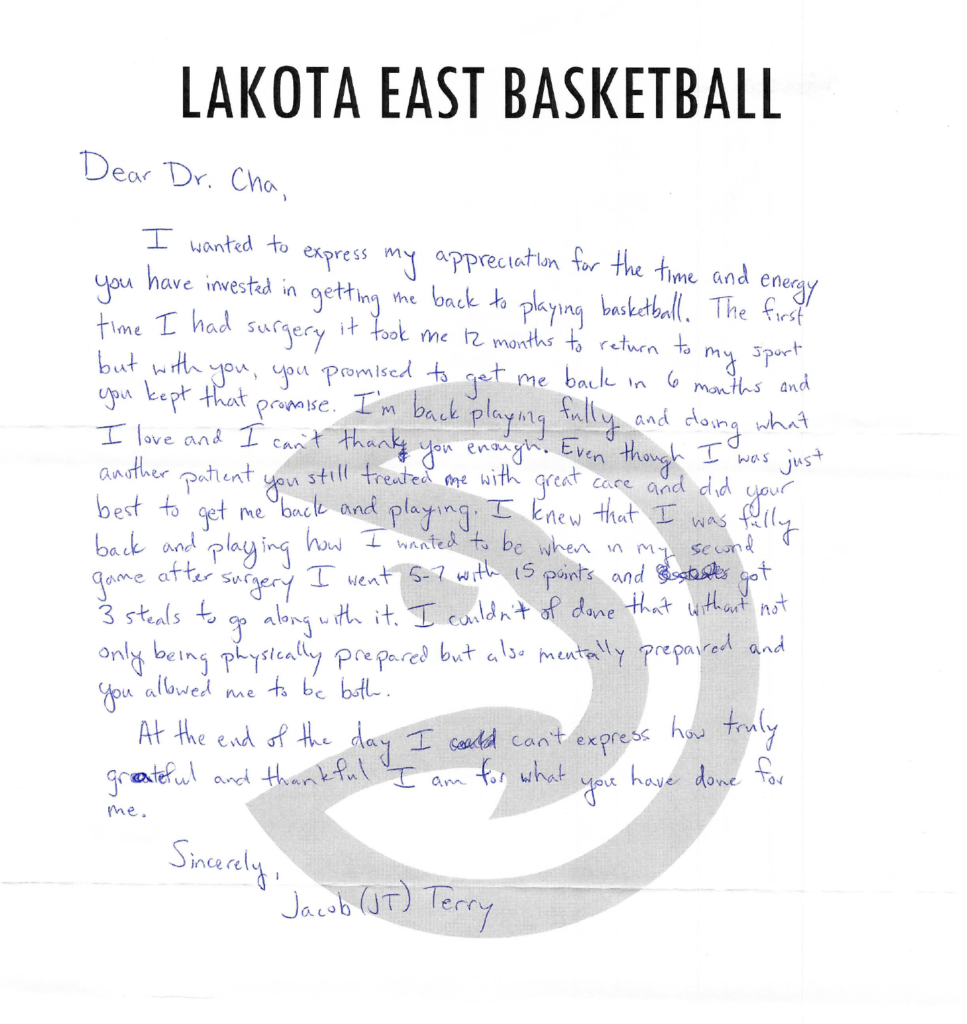 LAKOTA EAST BASKETBALL
Dear Dr. Cha,
I wanted to express my appreciation for the time and energy
you have invested in getting me back to playing basketball. The first
time I had surgery it took me 12 months to return to my sport
but with you, you promised to get me back in 6 months and
you kept that promise. I'm back playing fully and doing what
I love and I can't thank you enough. Even though I was just
another patient you still treated me with great care and did your
best to get me back and playing. I knew that I was fully
back and playing how I wanted to be when in my second
game after surgery I went 5-7 with 15 points and got
3 steals to go along with it. I couldn't of done that without not
only being physically prepared but also mentally prepaired and
you allowed me to be both.
At the end of the day I can't express how truly
grateful and thankful I am for what you have done for
me.
Sincerely,
Jacob (JT) Terry